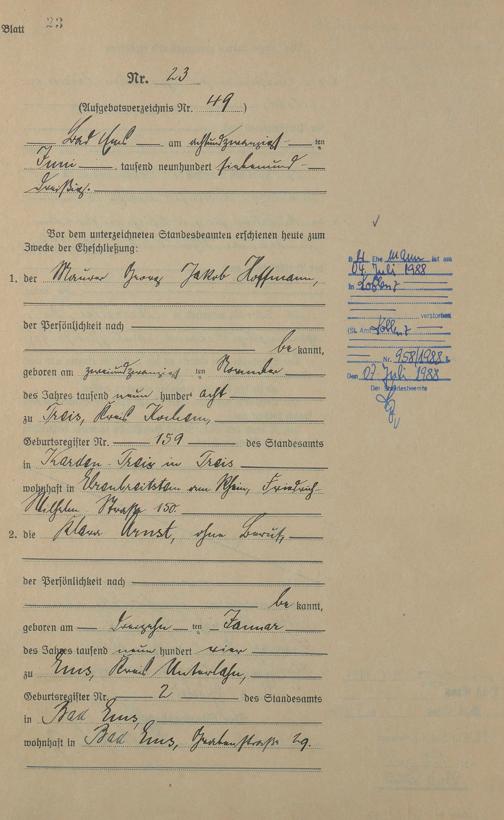 Blatt 23
Nr. 23
(Aufgebotsverzeichnis Nr. 49)
Bad Ems am achtundzwanzigsten
Juni tausend neunhundert siebenund
dreißig.
Vor dem unterzeichneten Standesbeamten erschienen heute zum
Zwecke der Eheschließung:
1. der Maurer Georg Jakob Hoffmann,
der Persönlichkeit nach
bekannt,
geboren am zweiundzwanzigsten November
des Jahres tausend neun hundert acht
zu Treis, Kreis Kochem,
Geburtsregister Nr. 159 des Standesamts
in Karden-Treis in Treis
wohnhaft in Ehrenbreitstein am Rhein, Friedrich
Wilhelm Straße 150.
2. die Klara Arnst, ohne Beruf,
der Persönlichkeit nach
bekannt,
geboren am dreizehnten Januar
des Jahres tausend neun hundert vier
zu Ems, Kreis Unterlahn,
Geburtsregister Nr. 2 des Standesamts
in Bad Ems,
wohnhaft in Bad Ems, Grabenstraße 29.
Ehemann ist am
04. Juli 1988
in Koblenz
verstorben
(St. Amt Koblenz
Nr. 958/1988
Den 07. Juli 1988
Der Standesbeamte